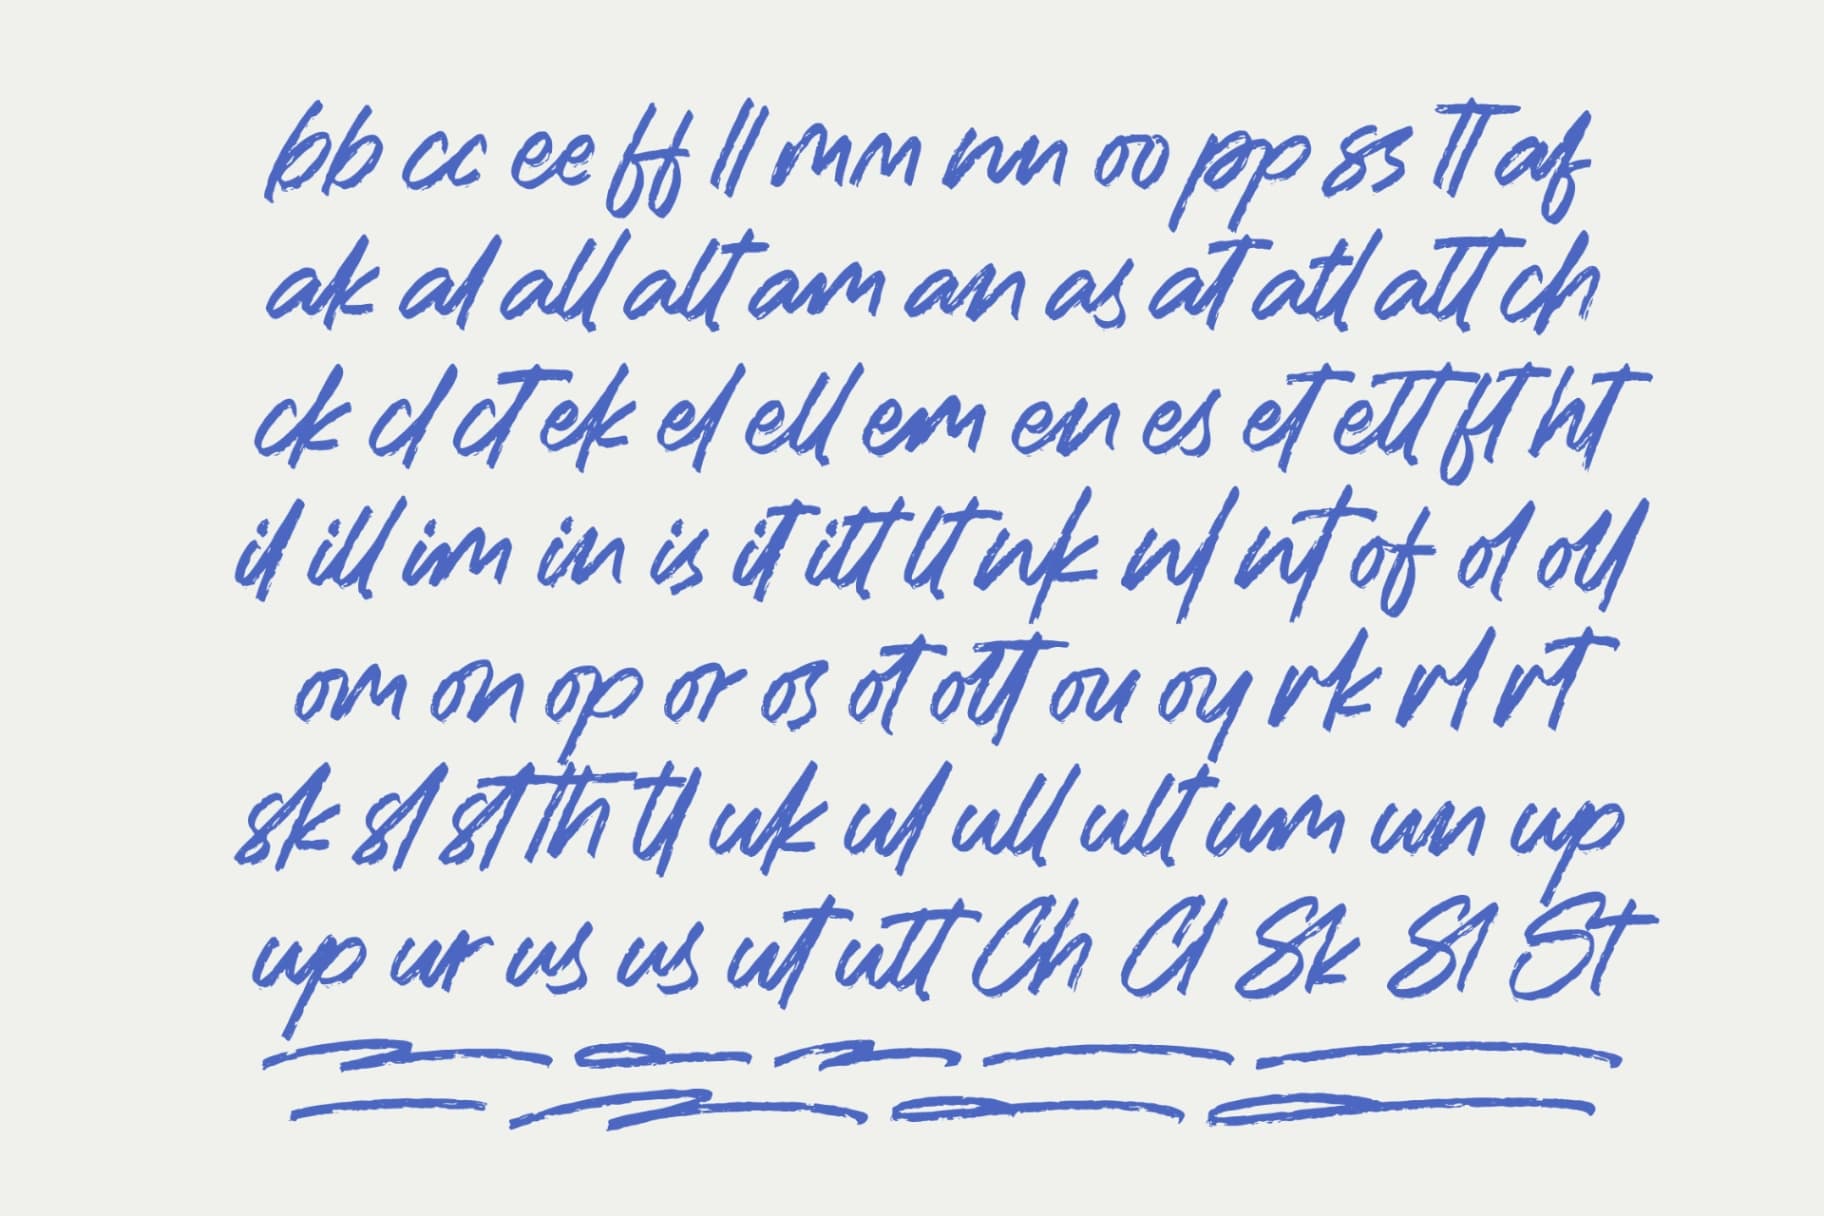 bb cc ee ff ll mm nn oo pp ss tt af
ak al all alt am an as at atl att ch
ck cl ct ek el ell em en es et ett ft ht
il ill im in is it itt lt nk nl nt of ol oll
om on op or os ot ott ou oy rk rl rt
sk sl st th tl uk ul ull ult um un up
up ur us us ut utt Ch Cl Sk Sl St